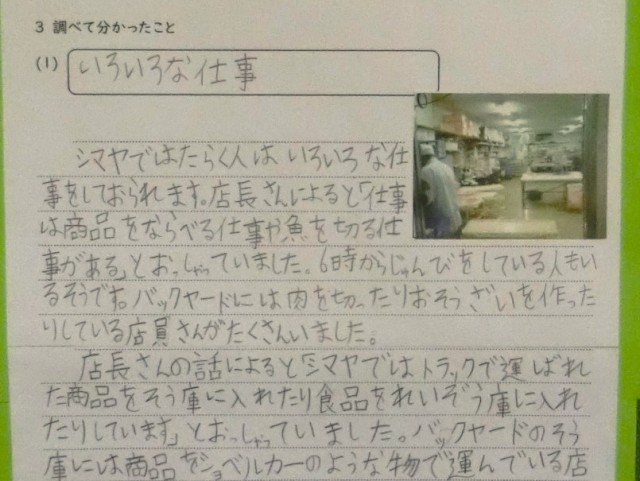 3 調べて分かったこと
(1) いろいろな仕事
シマヤではたらく人はいろいろな仕
事をしておられます。店長さんによると「仕事
は商品をならべる仕事や魚を切る仕
事がある」とおっしゃっていました。6時からじゅんびをしている人もい
るそうです。バックヤードには肉を切ったりおそうざいを作った
りしている店員さんがたくさんいました。
店長さんの話によると「シマヤではトラックで運ばれ
た商品をそう庫に入れたり食品をれいぞう庫に入れ
たりしています」とおっしゃっていました。バックヤードのそう
庫には商品をショベルカーのような物で運んでいる店